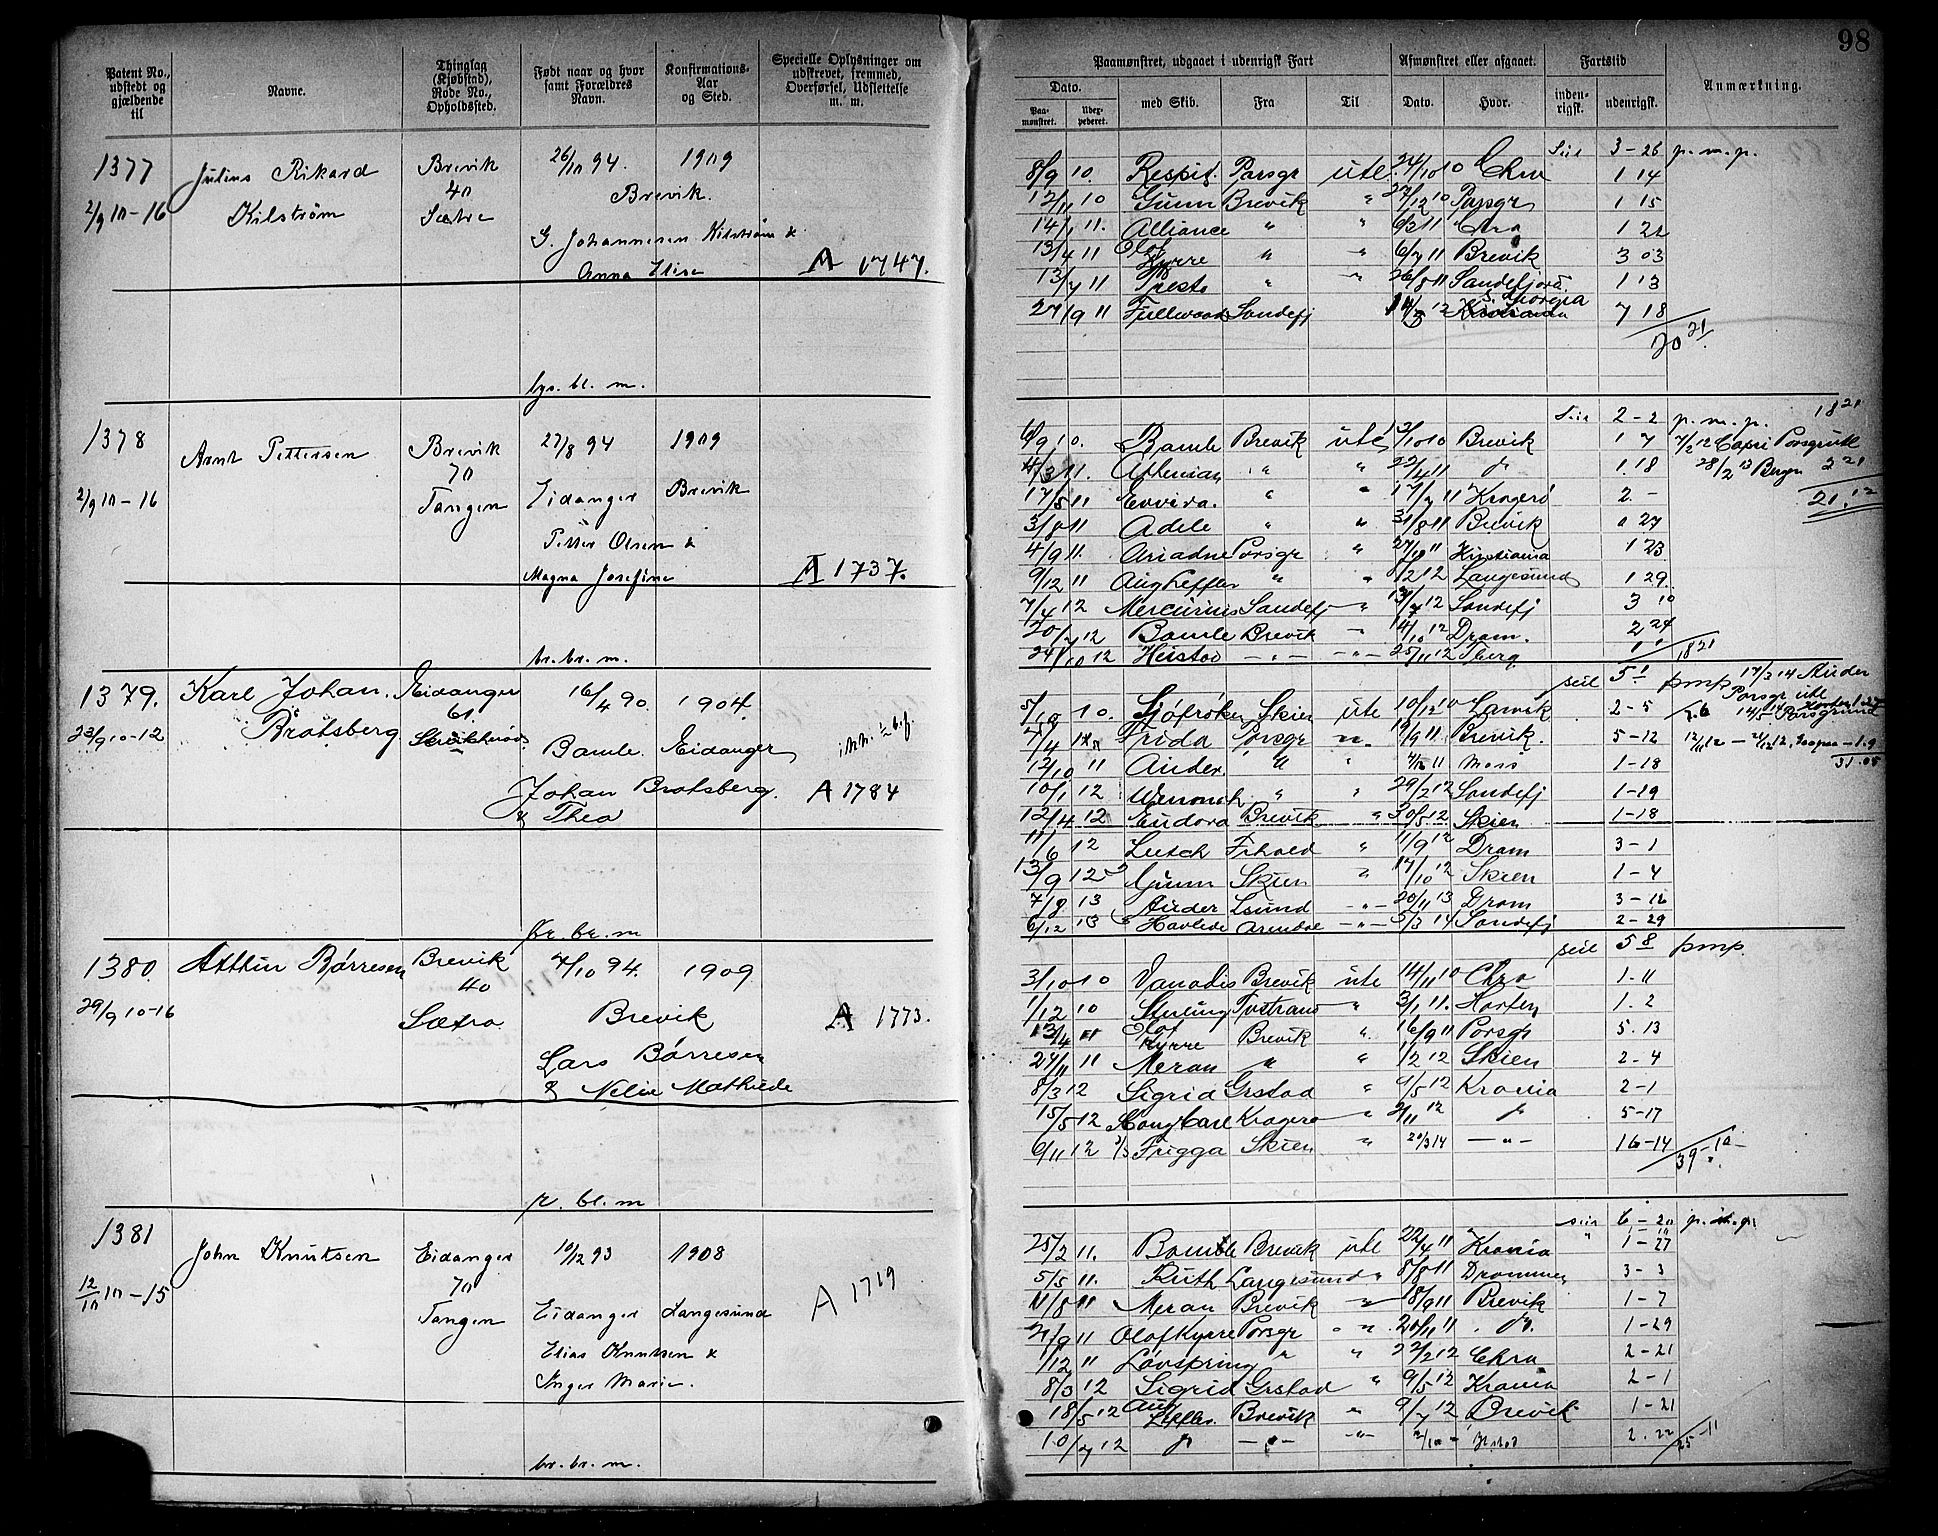 98
Patent No., udstedt og gjældende til
Navne.
Thinglag (Kjøbstad), Rode No., Opholdssted.
Født naar og hvor samt Forældres Navn.
Konfirmations-Aar og Sted.
Specielle Oplysninger om udskrevet, fremmed, Overførsel, Udslettelse m. m.
Paamønstret, udgaaet i udenrigsk Fart
Afmønstret eller afgaaet.
Fartstid
Anmærkning.
Dato.
med Skib.
Fra
Til
Dato.
Hvor.
inden-rigsk.
udenrigsk.
Paa-mønstret.
1377
Julius Rikard
Brevik
26/10 94.
1909
2/9 10-16
Kilström
40
Brevik.
Sætre
G. Johannesen Kilström &
Anna Elise
A 1747.
br. bl. m.
3-26 p. m. p.
8/9 10. Respit. Porsgr ute 24/10 10 Chra 1 14
12/11 10 Gunn Brevik " 27/12 10 Porsgr 1 15
14/1 11. Alliance " " Chra 1 22
13/4 11 Olof Kyrre " " 6/7 11 Brevik 3 03
13/7 11 Presto " " 26/8 11 Sandefjord. 1 13
27/9 11 Fullwood Sandefj 7 18
20 21
1378
Arnt Pettersen
Brevik
27/8 94
1909
70
2/9 10-16
Tangen
Eidanger
Brevik
Petter Olsen &
Magna Josefine
A 1737.
br. br. m.
2-2 p. m. p. 18 21
6/9 10. Bamle Brevik ute 3/10 10 Brevik 1 7 7/12 12 Capri Porsgr ute
4/3 11. Athenian " " 22/4 11 1 18 28/2 13 Bergen 2 21
17/5 11 Elvira. " " 17/7 11 Kragerø 2 - 21.12
3/8 11 Adele " " 31/8 11 Brevik 0 27
4/9 11. Ariadne Porsgr " 27/10 11 Kristiania 1 23
9/12 11 Aug Leffler " " 8/2 12 Langesund 1 29
7/4 12 Mercurius Sandefj " 17/7 12 Sandefj 3 10
20/7 12 Bamle Brevik " 14/10 12 Dram. 2 24
24/10 12 Heistad - " - - " - 25/11 12 Tberg 1 1 18 21
1379.
Karl Johan
Eidanger
16/4 90.
1904.
23/9 10-12
Brotsberg
61.
Bamle.
Eidanger
Johan Brotsberg
& Thea
A 1784
br. br. m
seil 5 1 pmp 17/3 14 Auder
Porsgr ute
5/10 10. Sjöfröken Skien ute 10/12 10 Larvik 2-5
7/4 11 Frida Porsgr " 19/9 11. Brevik. 5-12
12/10 11 Auder. " " Moss 1-18 31.05
10/1 12 " " 29/2 12 Sandefj 1-19
12/4 12 Eudora Brevik " 30/5 12 Skien 1-18
11/6 12 Lutch Frhald " 11/9 12 Dram 3-1
13/9 12 Gunn Skien " 17/10 12 Skien 1-4
7/8 13 Auder Lsund - " - 20/11 13 Dram 3-12
6/12 13 Havlide Arendal - " - 5/3 14 Sandefj 2-29
1380.
Atthur Børresen
Brevik
7/10 94.
1909
29/9 10-16
40
Sætra
Brevik
Lars Børresen
& Nelie Mathilde
A 1773.
br. bl. m
seil 5 8 pmp.
3/10 10 Vanadis Brevik ute 14/11 10 Chra 1-11
1/12 10 Sterling Tvstrand " 3/1 11. Horten 1-2
13/4 11 Olof Kyrre Brevik " 16/9 11 Porsgr 5.13
27/11 11 Meran " " 1/2 12 Skien 2-4
8/3 12 Sigrid Grstad " 9/5 12 Krania 2-1
15/5 12 Kong Carl Kragerø " 2/11 12 5-17
6/11 12 Frigga Skien " 20/3 14 - " - 16-14
39-10
1381
John Knutsen
Eidanger
10/12 93
1908
12/10 10-15
70
Tangen
Eidanger
Langesund
Elias Knutsen &
Inger Marie.
A 1719
br. br. m.
6-20 p. m. p.
25/2 11. Bamle Brevik ute 22/4 11 Krania 1-27
5/5 11. Ruth Langesund " 8/8 11 Drammen 3-3
11/8 11 Meran Brevik " 18/9 11 Brevik 1-7
21/9 11 Olof Kyrre Porsgr " 20/11 11 1-29
1/12 11 Løvspring " " 22/2 12 Chra 2-21
8/3 12 Sigrid Grstad " 9/5 12 Krania 2-1
18/5 12 Aug Leffler. Brevik " 9/7 12 Brevik 1-21
10/7 12 - " - " 2.22
25-11